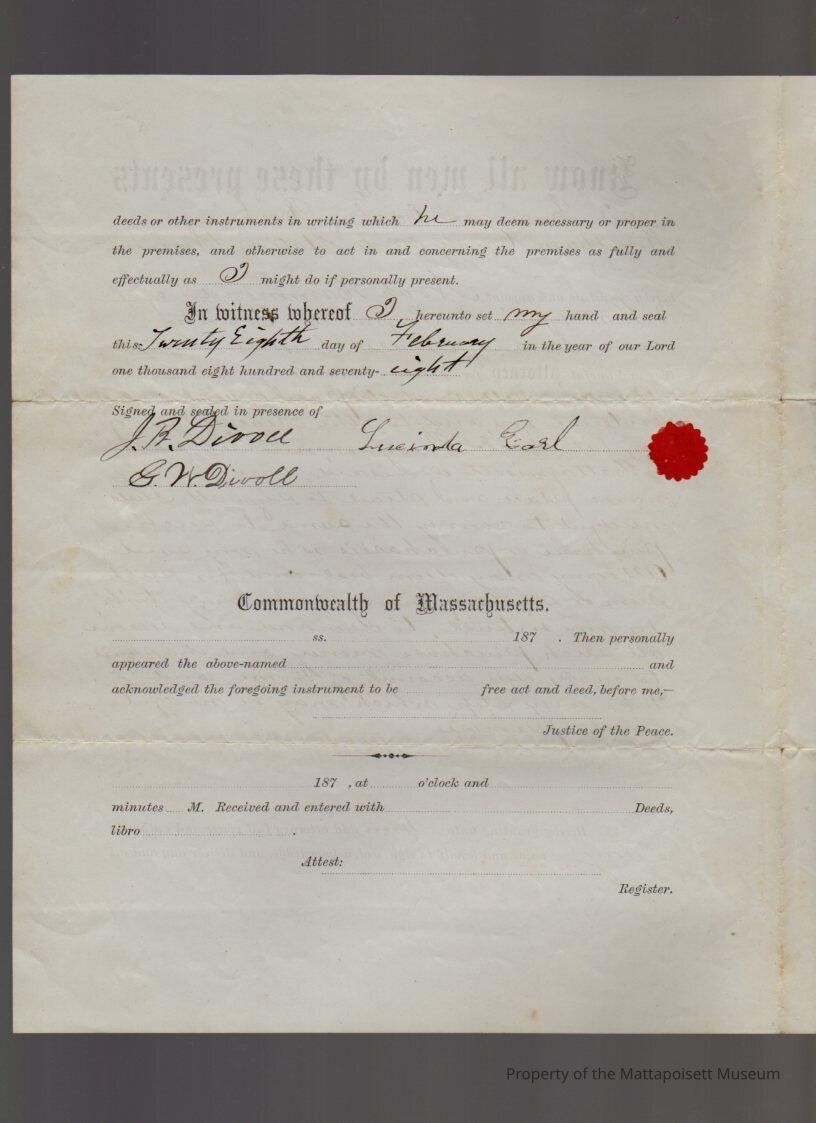 Know all men by these presents
deeds or other instruments in writing which he may deem necessary or proper in
the premises, and otherwise to act in and concerning the premises as fully and
effectually as I might do if personally present.
In witness whereof I hereunto set my hand and seal
this Twenty Eighth day of February in the year of our Lord
one thousand eight hundred and seventy-eight
Signed and sealed in presence of
J. R. Divoll Lucinda Earl
G. W. Divoll
Commonwealth of Massachusetts.
ss. 187 . Then personally
appeared the above-named and
acknowledged the foregoing instrument to be free act and deed, before me,—
Justice of the Peace.
187 , at o'clock and
minutes M. Received and entered with Deeds,
libro .
Attest:
Register.
Property of the Mattapoisett Museum